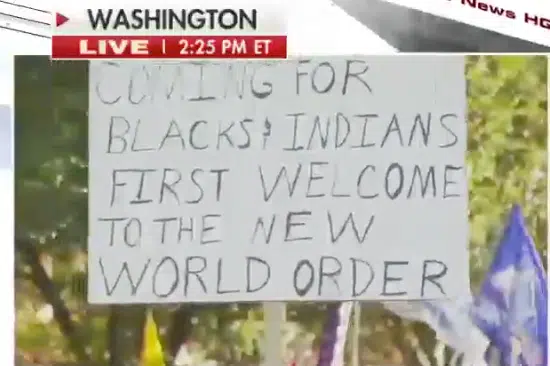 News HQ
WASHINGTON
LIVE | 2:25 PM ET
COMING FOR
BLACKS & INDIANS
FIRST WELCOME
TO THE NEW
WORLD ORDER